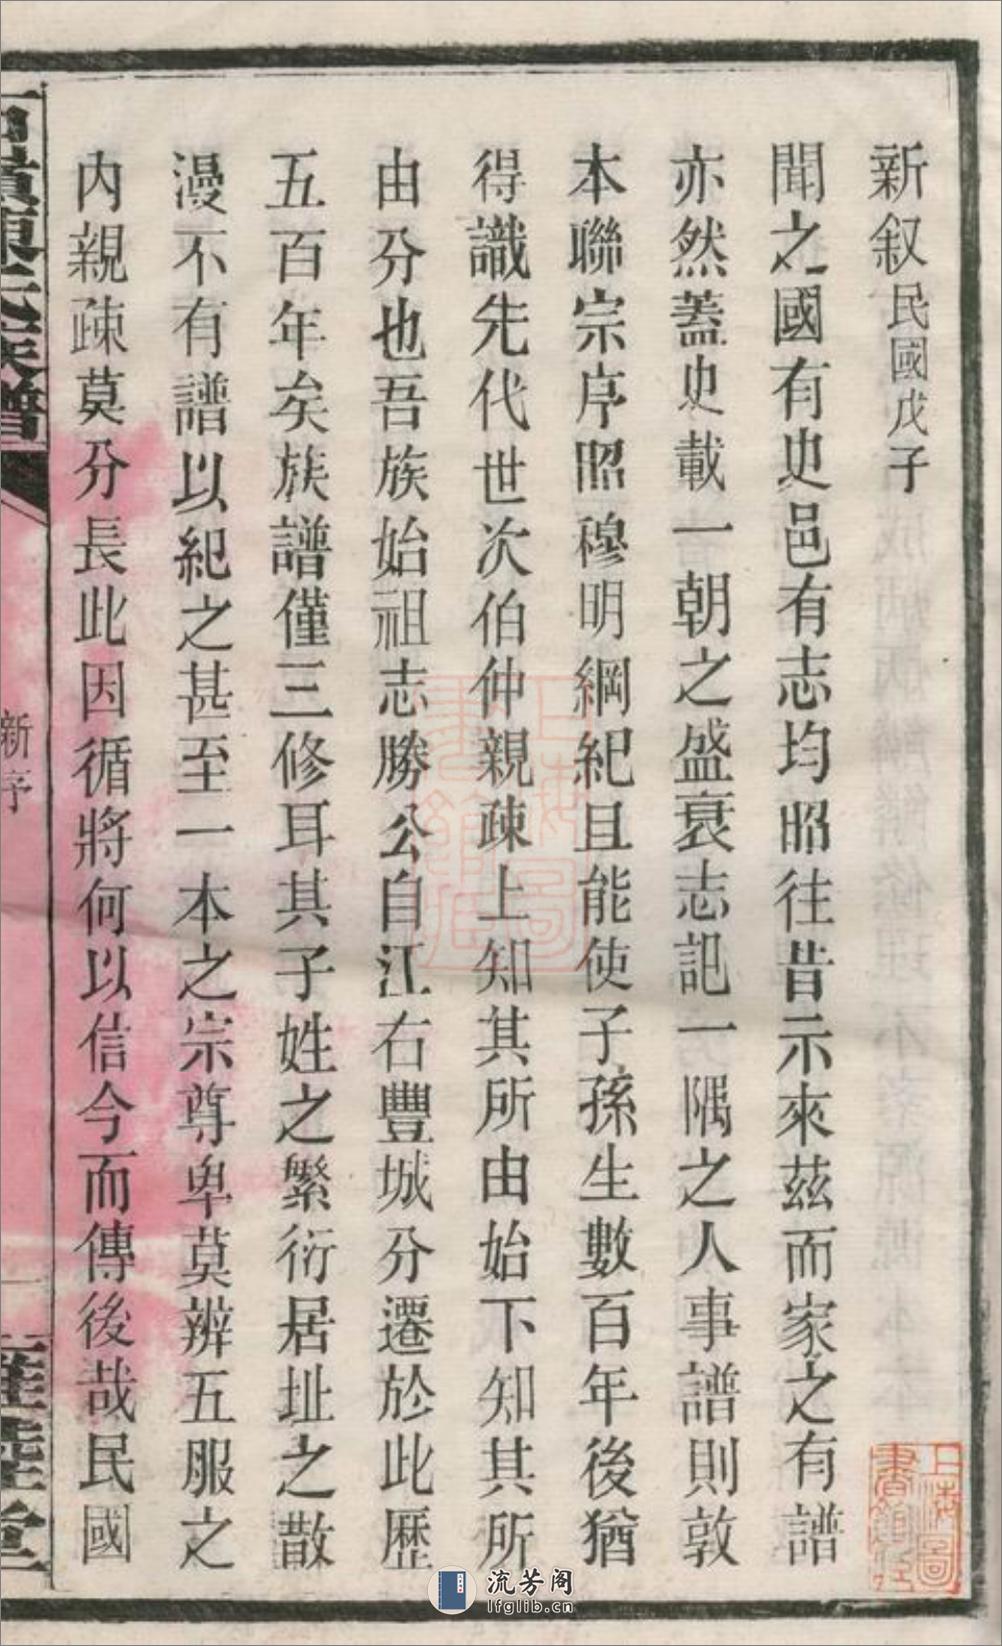 新叙民國戊子
聞之國有史邑有志均昭往昔示來茲而家之有譜
亦然蓋史載一朝之盛衰志記一隅之人事譜則敦
本聯宗序昭穆明綱紀且能使子孫生數百年後猶
得識先代世次伯仲親疎上知其所由始下知其所
由分也吾族始祖志勝公自江右豐城分遷於此歷
五百年矣族譜僅三修耳其子姓之繁衍居址之散
漫不有譜以紀之甚至一本之宗尊卑莫辨五服之
內親疎莫分長此因循將何以信今而傳後哉民國
氏族譜
新序
一
堂
上海圖書館藏
上海圖書館藏
流芳阁
lfglib.cn